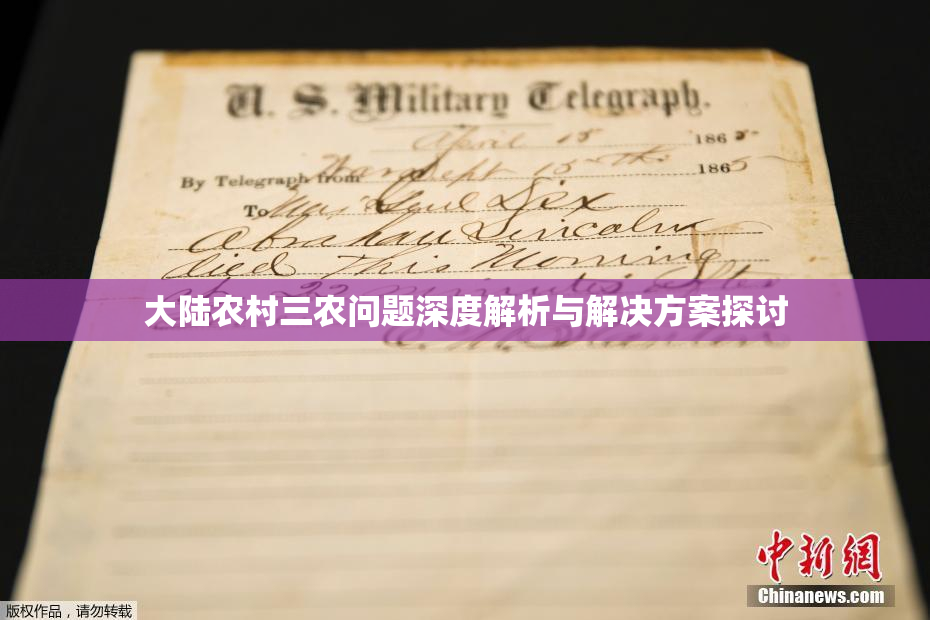 U. S. Military Telegraph.
April 15 1865
By Telegraph from War Dept 15th 1865
To Maj Genl Dix
Abraham Lincoln
died This Morning
at 22 minutes after
大陆农村三农问题深度解析与解决方案探讨
E. M. Stanton
中新网
Chinanews.com
版权作品，请勿转载